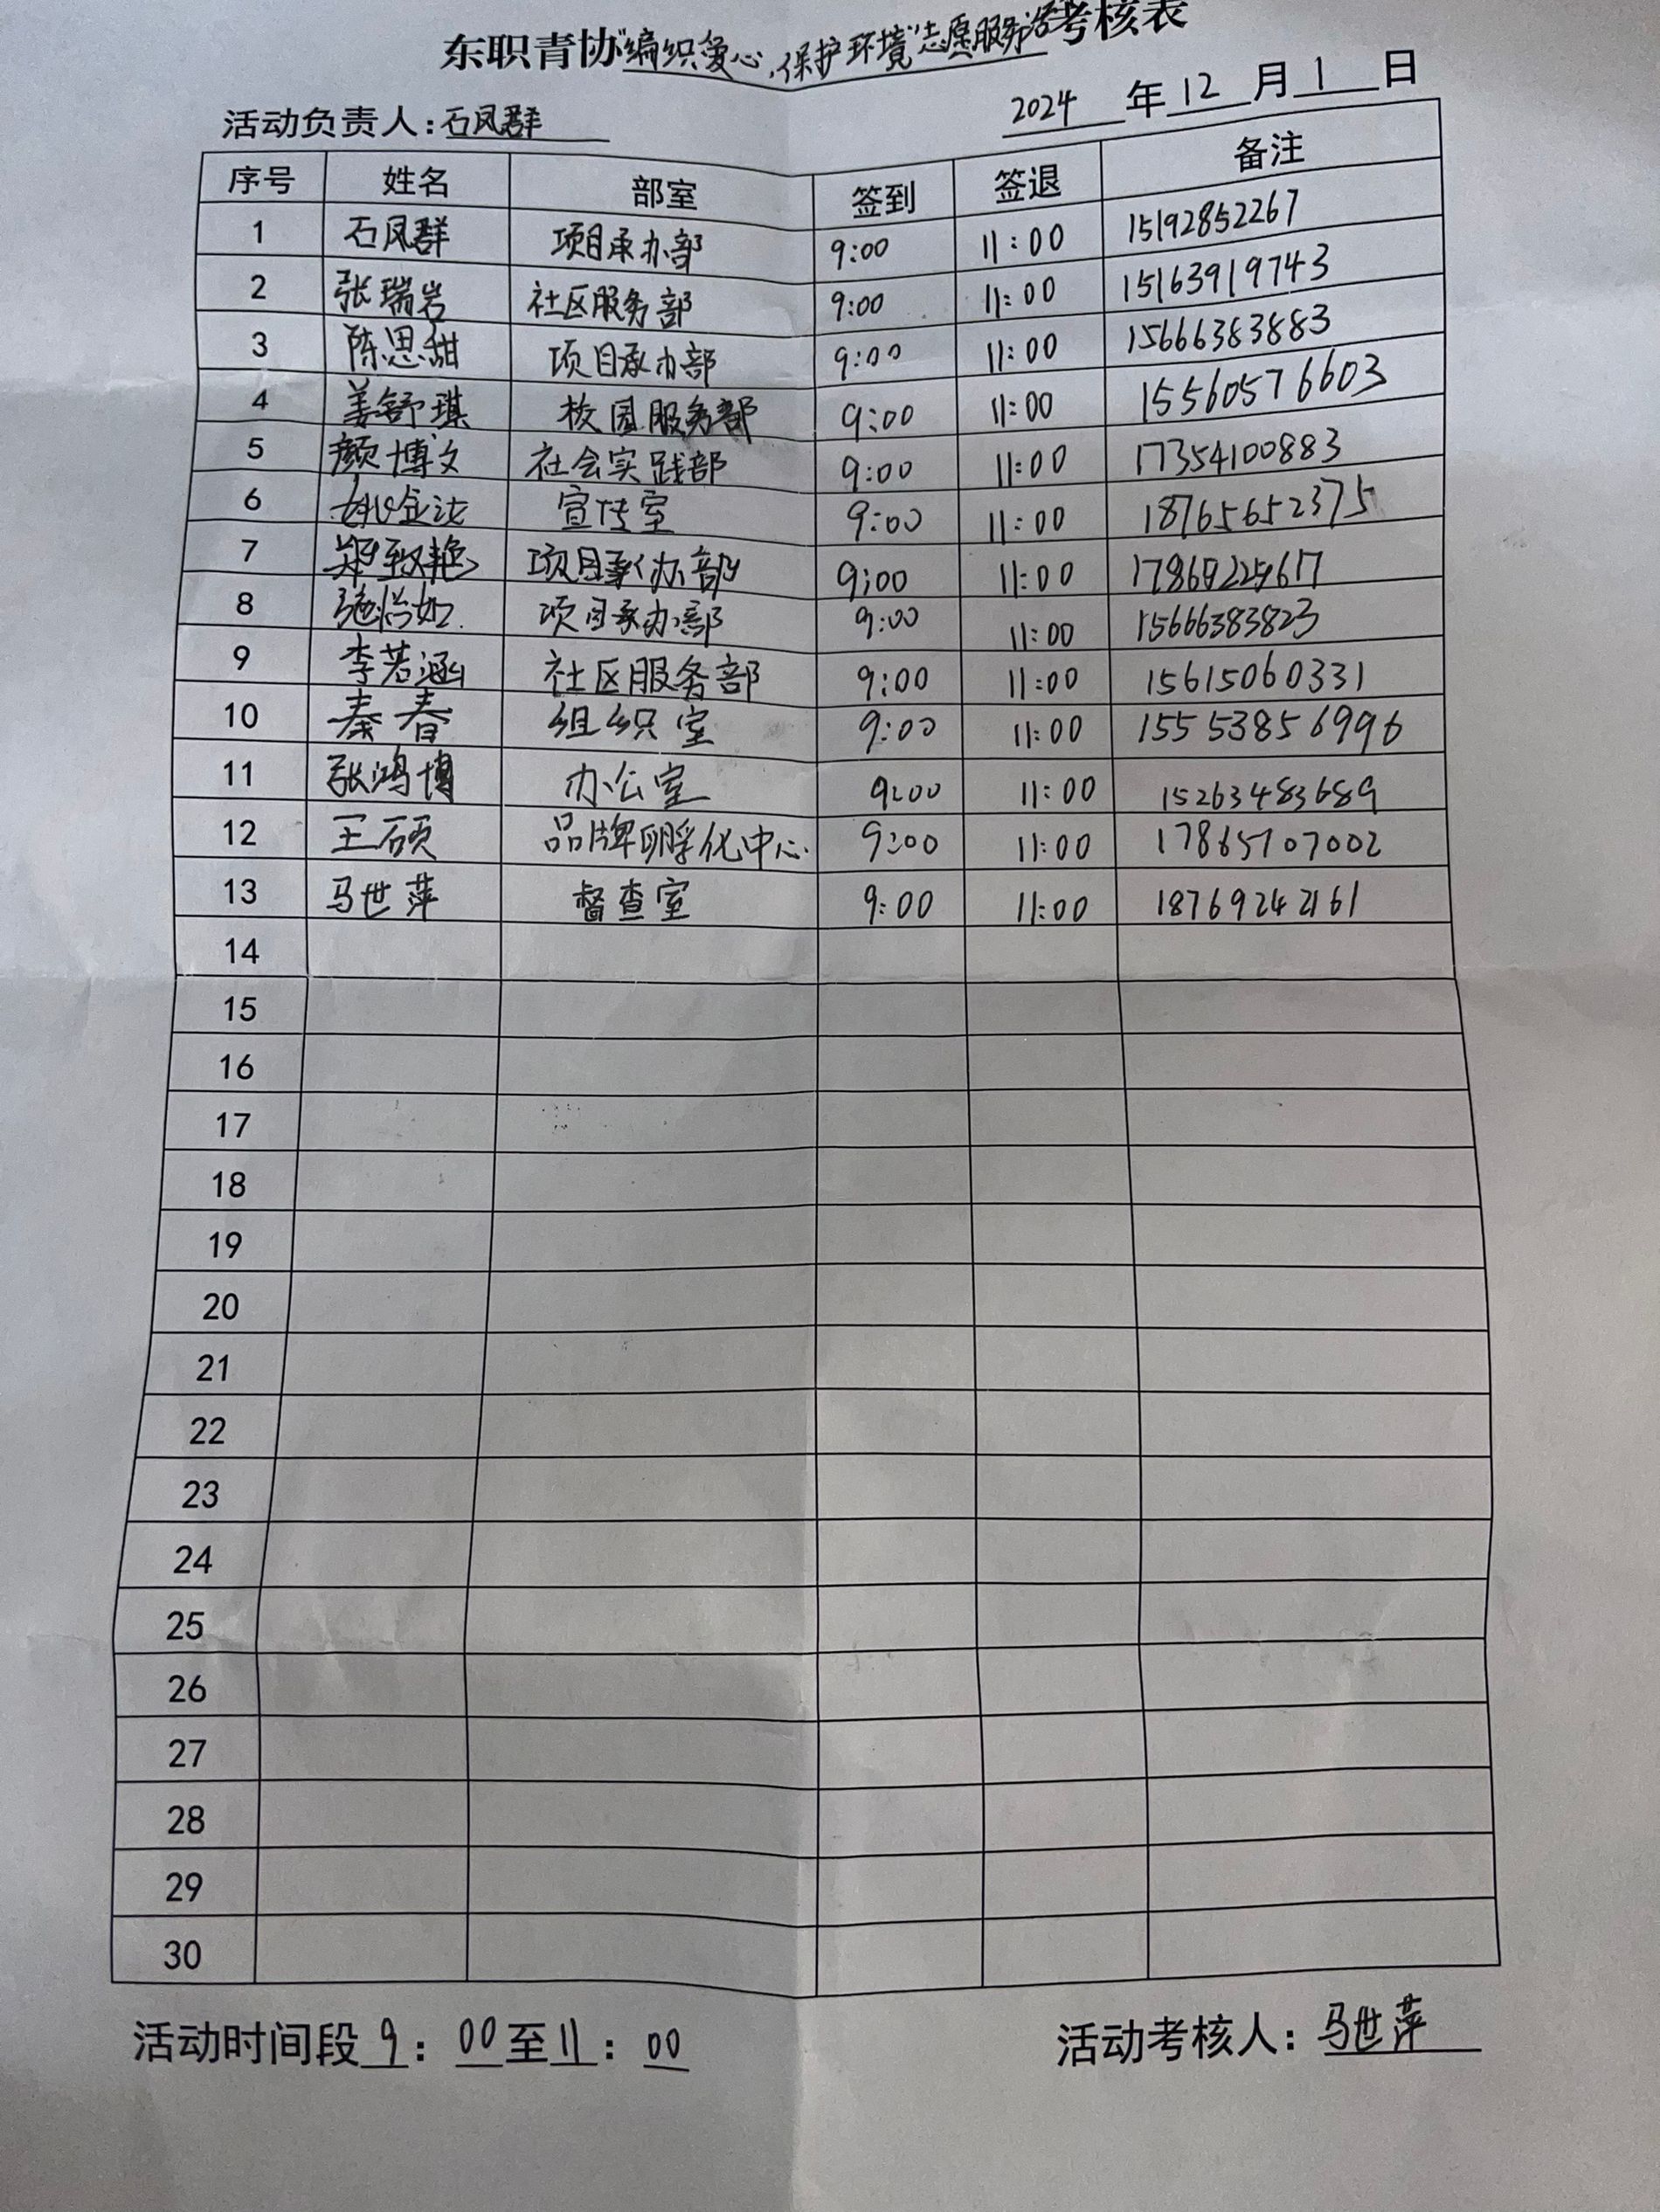 东职青协“编织爱心,保护环境”志愿服务活考核表
活动负责人:石凤群 2024年12月1日
序号 姓名 部室 签到 签退 备注
1 石凤群 项目承办部 9:00 11:00 15192852267
2 张瑞岩 社区服务部 9:00 11:00 15163919743
3 陈思甜 项目承办部 9:00 11:00 15666383883
4 姜舒琪 校园服务部 9:00 11:00 15560576603
5 颜博文 社会实践部 9:00 11:00 17354100883
6 宣传室 9:00 11:00 18765652375
7 郑致艳 项目承办部 9:00 11:00
8 项目承办部 9:00 11:00 15666383823
9 李若涵 社区服务部 9:00 11:00 15615060331
10 秦春 组织室 9:00 11:00 15553856996
11 张鸿博 办公室 9:00 11:00 15263483689
12 王硕 品牌孵化中心 9:00 11:00 17865707002
13 马世萍 督查室 9:00 11:00 18769242161
14
15
16
17
18
19
20
21
22
23
24
25
26
27
28
29
30
活动时间段9:00至11:00 活动考核人:马世萍